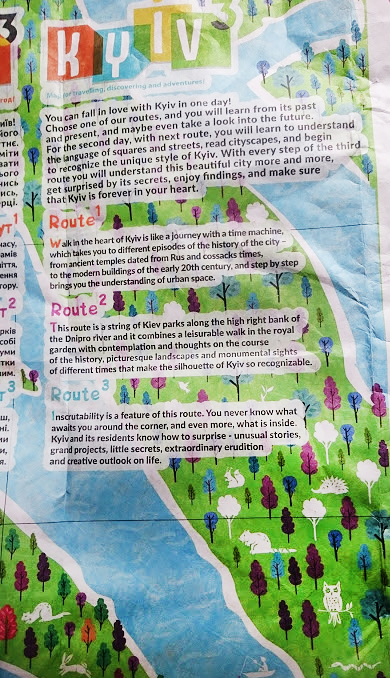 KYIV³
Map for travelling, discovering and adventures!
You can fall in love with Kyiv in one day!
Choose one of our routes, and you will learn from its past
and present, and maybe even take a look into the future.
For the second day, with next route, you will learn to understand
the language of squares and streets, read cityscapes, and begin
to recognize the unique style of Kyiv. With every step of the third
route you will understand this beautiful city more and more,
get surprised by its secrets, enjoy findings, and make sure
that Kyiv is forever in your heart.
Route¹
Walk in the heart of Kyiv is like a journey with a time machine,
which takes you to different episodes of the history of the city –
from ancient temples dated from Rus and cossacks times,
to the modern buildings of the early 20th century, and step by step
brings you the understanding of urban space.
Route²
This route is a string of Kiev parks along the high right bank of
the Dnipro river and it combines a leisurable walk in the royal
garden with contemplation and thoughts on the course
of the history, picturesque landscapes and monumental sights
of different times that make the silhouette of Kyiv so recognizable.
Route³
Inscrutability is a feature of this route. You never know what
awaits you around the corner, and even more, what is inside.
Kyiv and its residents know how to surprise - unusual stories,
grand projects, little secrets, extraordinary erudition
and creative outlook on life.